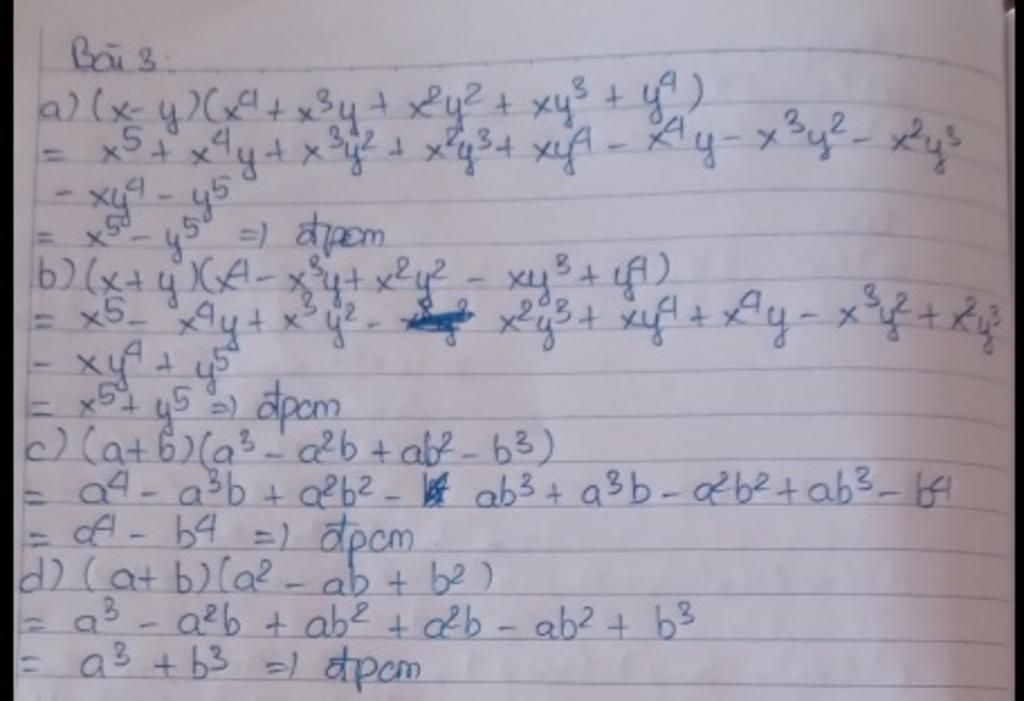 Bài 3:
a) (x - y)(x⁴ + x³y + x²y² + xy³ + y⁴)
= x⁵ + x⁴y + x³y² + x²y³ + xy⁴ - x⁴y - x³y² - x²y³
- xy⁴ - y⁵
= x⁵ - y⁵ => đpcm
b) (x + y)(x⁴ - x³y + x²y² - xy³ + y⁴)
= x⁵ - x⁴y + x³y² - x²y³ + xy⁴ + x⁴y - x³y² + x²y³
- xy⁴ + y⁵
= x⁵ + y⁵ => đpcm
c) (a + b)(a³ - a²b + ab² - b³)
= a⁴ - a³b + a²b² - ab³ + a³b - a²b² + ab³ - b⁴
= a⁴ - b⁴ => đpcm
d) (a + b)(a² - ab + b²)
= a³ - a²b + ab² + a²b - ab² + b³
= a³ + b³ => đpcm